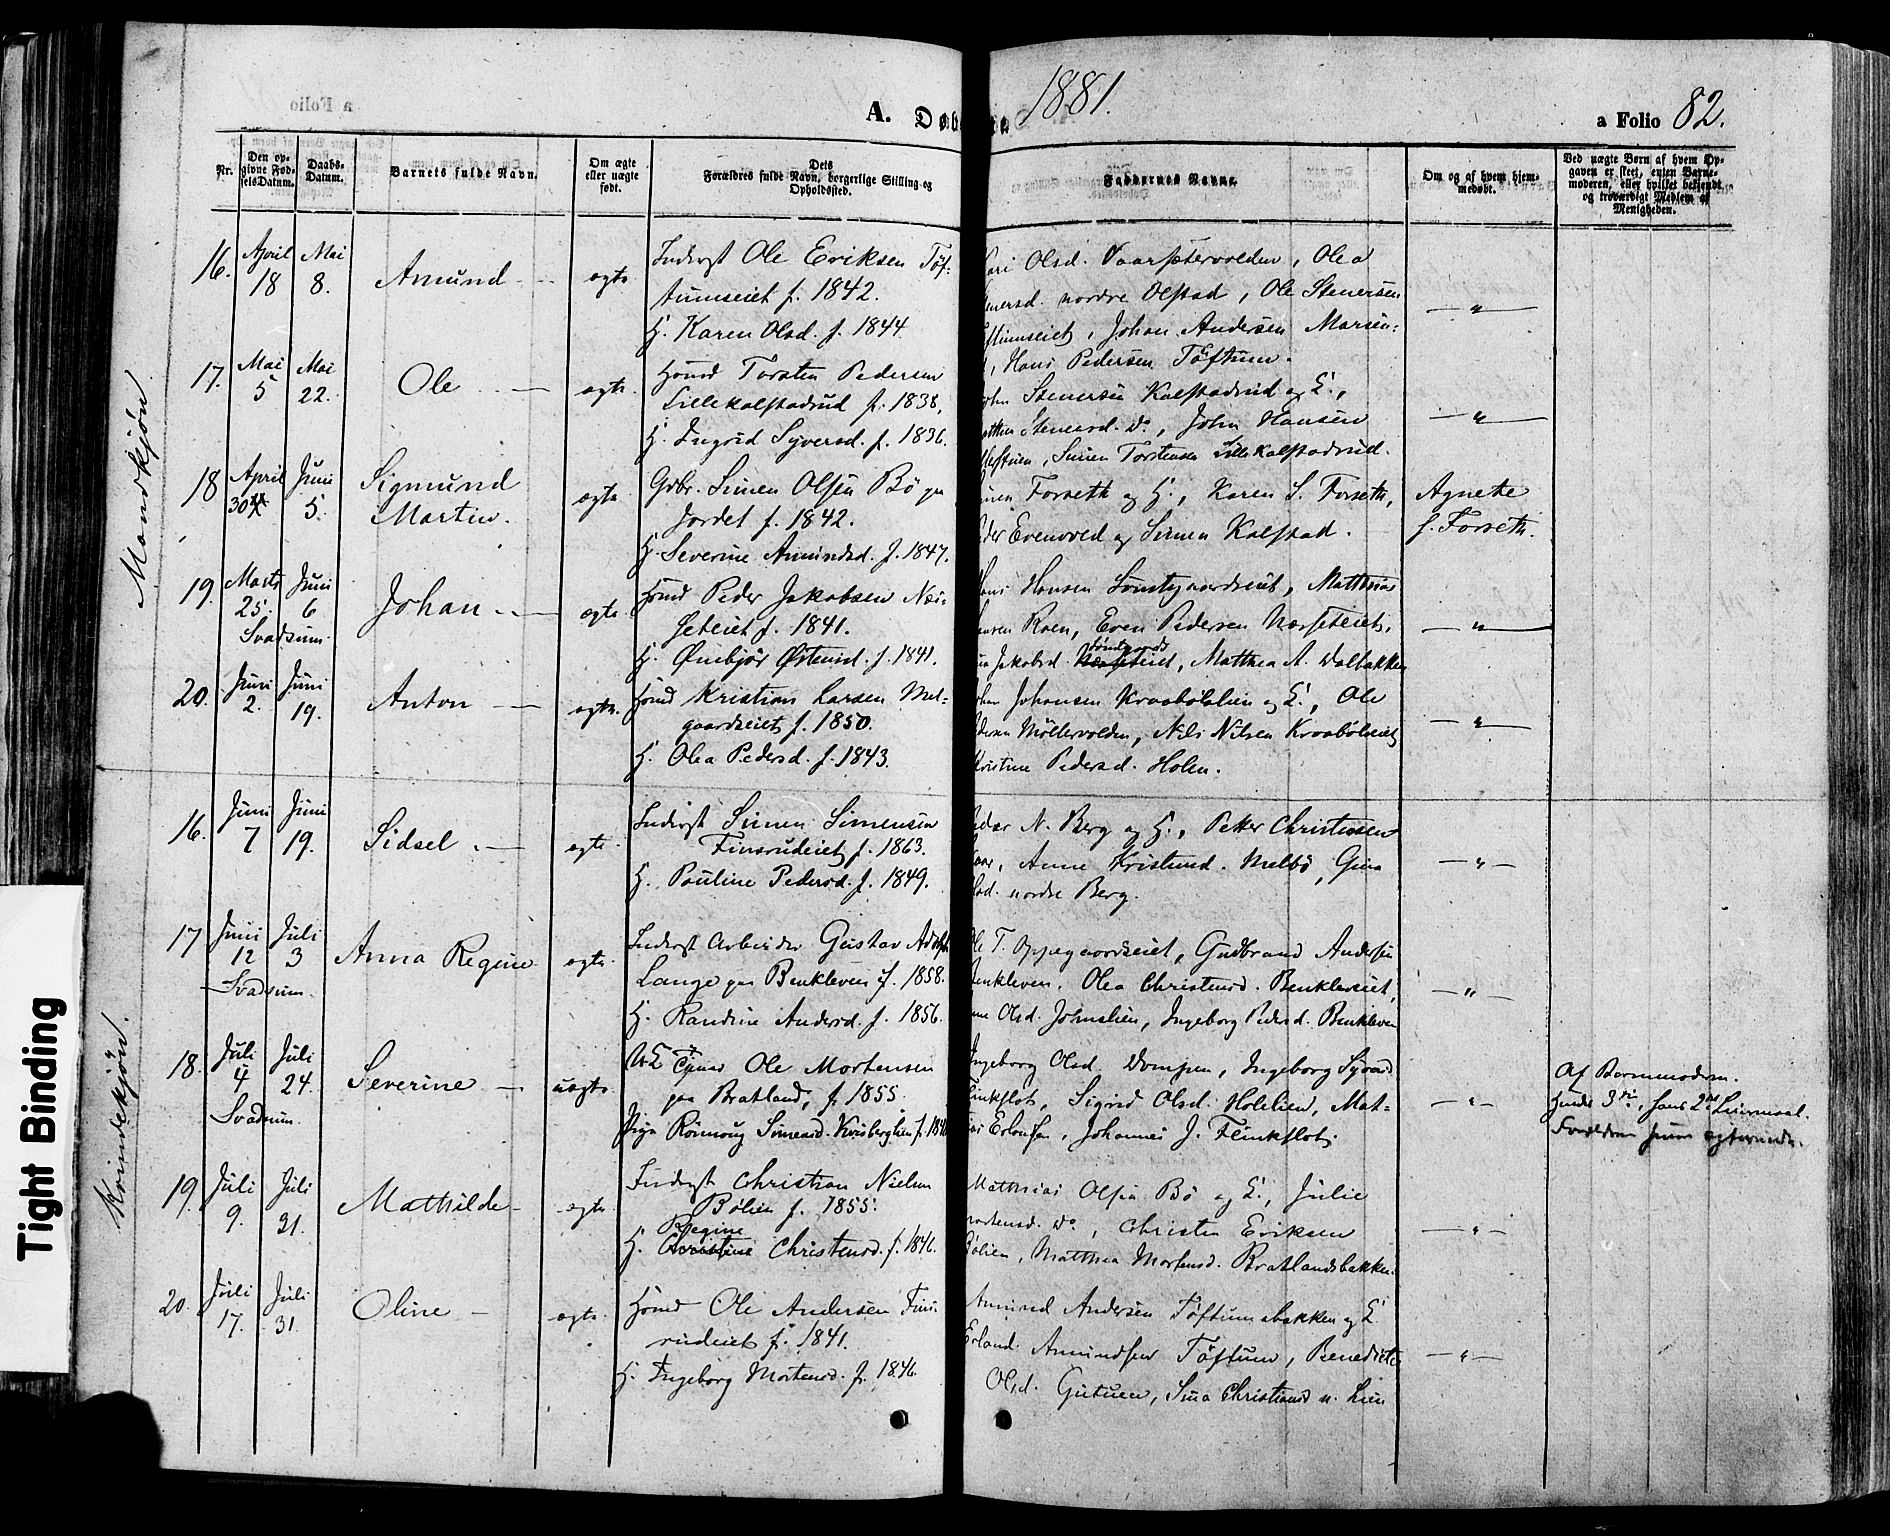 a Folio
A. Døb
1881.
a Folio 82.
Nr.
Den op-
givne Fød-
selsDatum.
Daabs-
Datum.
Barnets fulde Navn.
Om ægte
eller uægte
født.
Dets
Forældres fulde Navn, borgerlige Stilling og
Opholdssted.
Faddernes Navne.
Om og af hvem hjem-
medøbt.
Ved uægte Børn af hvem Op-
gaven er skeet, enten Barne-
moderen, eller hvilket bekjendt
og troværdigt Medlem af
Menigheden.
Mandkjøn.
16.
April
18
Mai
8.
Amund
ægte
Inderst Ole Eriksen Töf-
tumseiet f. 1842.
H. Karen Olsd. f. 1844
Kari Olsd. Vaarsetervolden, Olea
nordre Olstad, Ole Stenersen
Johan Andersen
Hans Pedersen Töftum.
17.
Mai
5
Mai
22.
Ole
ægte
Hsmd Torsten Pedersen
Lillekalstadrud f. 1838.
H. Ingrid Syversd. f. 1836.
Stenersen Kalstadrud og
Stenersd. Do, John Hansen
Simen Torstensen Lillekalstadrud.
18
April
30
Juni
5.
Sigmund
Martin.
ægte
Gdbr. Simen Olsen Bö paa
Jordet f. 1842.
H. Severine Amundsd. f. 1847.
Forseth og H., Karen S. Forseth,
Evenvold og Simen Kalstad.
Agnete
S. Forseth.
19.
Marts
25.
Juni
6
Svadsum.
Johan
ægte
Hsmd Peder Jakobsen
f. 1841.
H. Østensd. f. 1841.
Hans Hansen Matthias
Hansen Roen, Even Pedersen
Jakobsd. Matthea A. Dalbakken
20.
Juni
2.
Juni
19.
Anton
ægte
Hsmd Kristian Larsen Mel-
gaardseiet f. 1850.
H. Olea Pedersd. f. 1843.
Johansen Kraabölslien og Ole
Pedersen Möllervolden, Nils Nilsen Kraabölseiet
Kristine Pedersd. Holen.
Kvindekjøn.
16.
Juni
7
Juni
19.
Sidsel
ægte
Inderst Simen Simensen
Finsrudeiet f. 1863.
H. Pauline Pedersd. f. 1849.
Peder N. Berg og H., Petter Christiansen
Anne Melbö, Gina
Olsd. nordre Berg.
17
Juni
12
Juli
3
Svadsum.
Anna Regine
ægte
Inderst Arbeider Gustav Adolf
Lange paa Benkleven f. 1858.
H. Randine Andersd. f. 1856.
Ole T. Oppegaardseiet, Gudbrand Andersen
Benkleven. Olea Christensd. Benkleveiet,
Olsd. Johnslien, Ingeborg Pedersd. Benkleven
18.
Juli
4
Juli
24.
Svadsum.
Severine
uægte
Ole Mortensen
paa Bratland, f. 1855
Pige Rönnoug Simensd. Kvisberglien
Ingeborg Olsd. Dompen, Ingeborg
Flinkflot, Sigrid Olsd. Holelien, Mat-
Erlandsen, Johannes J. Flinkflot.
Af Barnemoderen.
Hendes 3die, hans 2det Leiermaal.
19.
Juli
9.
Juli
31.
Mathilde
ægte
Inderst Christian Nielsen
Bölien f. 1855.
Regine
H. Christine Christensd. f. 1846.
Matthias Olsen Bö og Julie
Mortensd. Do, Christen Eriksen
Bölien, Matthea Mortensd. Bratlandsbakken.
20.
Juli
17.
Juli
31.
Oline
ægte
Hsmd Ole Andersen Fins-
rudeiet f. 1841.
H. Ingeborg Mortensd. f. 1846.
Amund Andersen Töftumsbakken og
Erland Amundsen Töftum, Benedicte
Olsd. Gutuen, Sina Christiansd n. Lien
Tight Binding